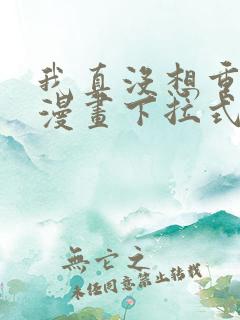 我真没想重
漫畫下拉式
無它之
未经同意禁止转载